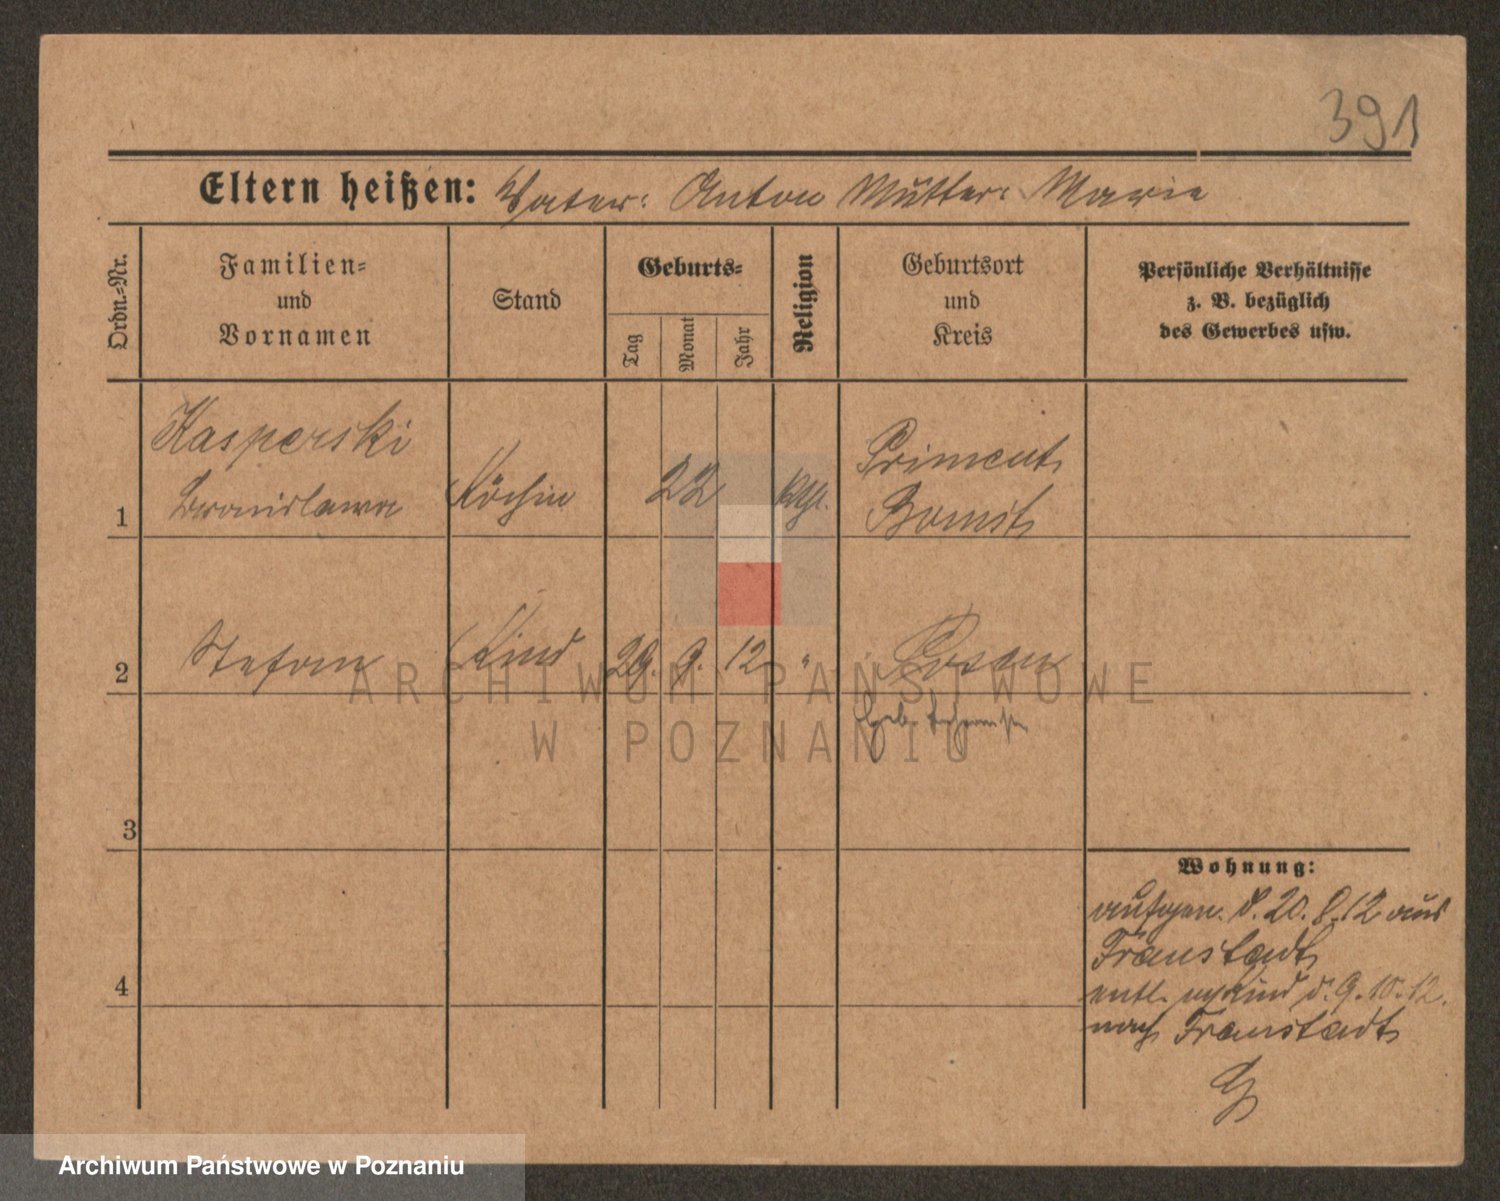 391
Eltern heißen: Vater: Anton Mutter: Marie
Ordn.-Nr.
Familien-
und
Vornamen
Stand
Geburts-
Tag
Monat
Jahr
Religion
Geburtsort
und
Kreis
Persönliche Verhältnisse
z. B. bezüglich
des Gewerbes usw.
Kasperski
Priment
1 Bronislawa Köchin 22 kth.
Bomst
2 Stefan Kind 29. 9. 12 " Posen
Geb.
3
Wohnung:
aufgen. d. 20. 8. 12 aus
Fraustadt
4
entl. m Kind d. 9. 10. 12.
nach Fraustadt
ARCHIWUM PAŃSTWOWE
W POZNANIU
Archiwum Państwowe w Poznaniu